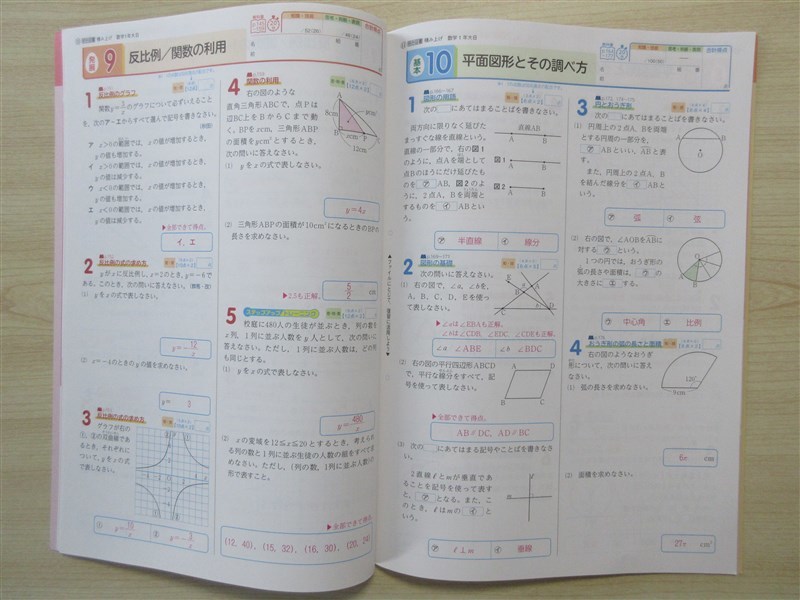 発展 9 反比例/関数の利用
1 反比例のグラフ
ア x>0の範囲では，xの値が増加するとき，
yの値も増加する。
イ x>0の範囲では，xの値が増加するとき，
yの値は減少する。
ウ x<0の範囲では，xの値が増加するとき，
yの値も増加する。
エ x<0の範囲では，xの値が増加するとき，
yの値は減少する。
▶全部できて得点。
イ，エ
2 反比例の式の求め方
yがxに反比例し，x=2のとき，y=-6で
ある。このとき，次の問いに答えなさい。
(1) yをxの式で表しなさい。
(2) x=-4のときのyの値を求めなさい。
3 反比例の式の求め方
グラフが右の
①，②の双曲線であ
るとき，それぞれに
ついて，yをxの式
で表しなさい。
4 関数の利用
右の図のような
直角三角形ABCで，点Pは
辺BC上をBからCまで動
く。BPをxcm，三角形ABP
の面積をycm²とするとき，
次の問いに答えなさい。
A
8cm
B
P
C
12cm
(1) yをxの式で表しなさい。
y=4x
(2) 三角形ABPの面積が10cm²になるときのBPの
長さを求めなさい。
▶2.5も正解。
5/2 cm
5 ステップアップトレーニング
校庭に480人の生徒が並ぶとき，列の数を
x列，1列に並ぶ人数をy人として，次の問いに
答えなさい。ただし，1列に並ぶ人数は，どの列
も同じとする。
(1) yをxの式で表しなさい。
y=480/x
(2) xの変域を12≦x≦20とするとき，考えられ
る列の数と1列に並ぶ生徒の人数の組をすべて求
めなさい。ただし，(列の数，1列に並ぶ人数)の
形で表すこと。
▶全部できて得点
(12，40)，(15，32)，(16，30)，(20，24)
基本 10 平面図形とその調べ方
1 図形の用語
次の□にあてはまることばを書きなさい。
両方向に限りなく延びた
まっすぐな線を直線という。
直線の一部分で，右の図1
のように，点Aを端として
点Bのほうにだけ延びたも
のを㋐AB，図2のよ
うに，2点A，Bを両端と
するものを㋑ABとい
う。
直線AB
A B
図1
A B
図2
A B
㋐ 半直線 ㋑ 線分
2 図形の基礎
次の問いに答えなさい。
(1) 右の図で，∠a，∠bを，
A，B，C，D，Eを使っ
て表しなさい。
▶∠aは∠EBAも正解。
∠bは∠CDB，∠EDC，∠CDEも正解。
∠a ∠ABE ∠b ∠BDC
(2) 右の図の平行四辺形ABCD
で，平行な線分をすべて，記
号を使って表しなさい。
A D
B C
▶全部できて得点。
AB∥DC，AD∥BC
(3) 次の□にあてはまる記号やことばを書きなさ
い。
2直線ℓとmが垂直であ
ることを記号を使って表す
と，㋐となる。また，こ
のとき，ℓはmの㋑と
いう。
㋐ ℓ⊥m ㋑ 垂線
3 円とおうぎ形
次の□にあてはまることばを書きなさい。
(1) 円周上の2点A，Bを両端
とする円周の一部分を，
㋐ABといい，ABと表
す。
また，円周上の2点A，B
を結んだ線分を㋑ABと
いう。
A B
O
㋐ 弧 ㋑ 弦
(2) 右の図で，∠AOBをABに
対する㋒という。
1つの円では，おうぎ形の
弧の長さや面積は，㋒の
大きさに㋓する。
㋒ 中心角 ㋓ 比例
4 おうぎ形の弧の長さと面積
右の図のようなおうぎ
形について，次の問いに答え
なさい。
(1) 弧の長さを求めなさい。
120°
9cm
6π cm
(2) 面積を求めなさい。
27π cm²